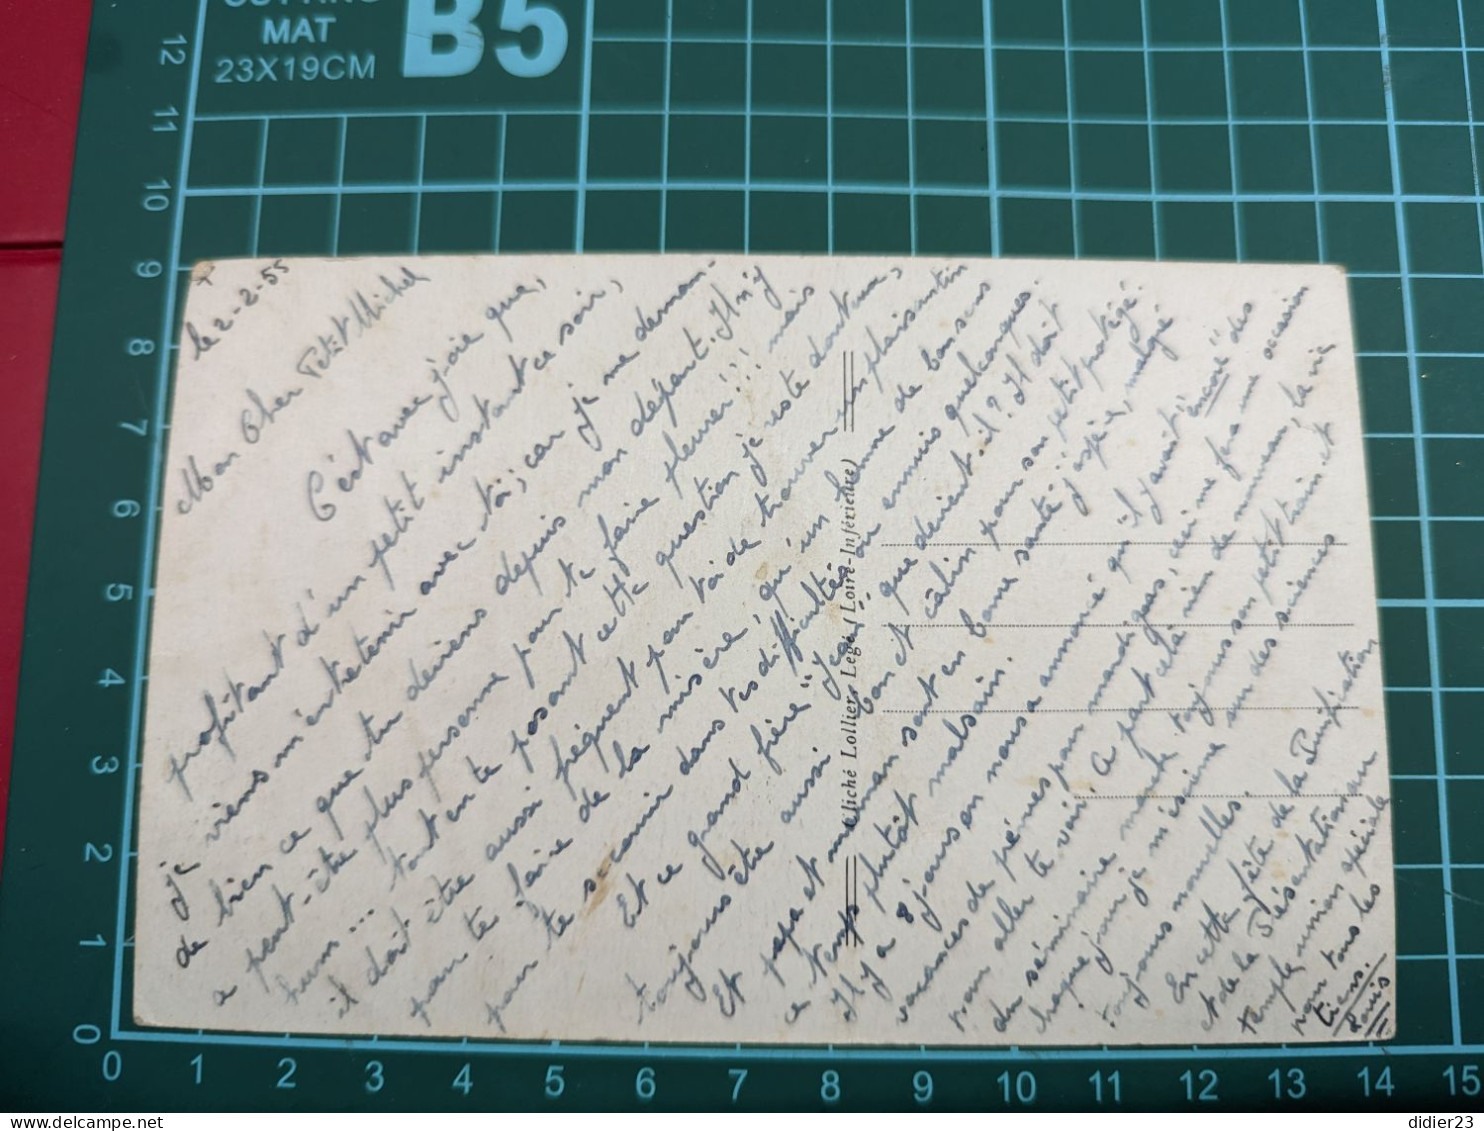 CUTTING
MAT
23X19CM
B5
12
11
10
9
8
7
6
5
4
3
2
1
0
0 1 2 3 4 5 6 7 8 9 10 11 12 13 14 15
le 2-2-55
Mon Cher Petit Michel
C'est avec joie que,
profitant d'un petit instant ce soir,
je viens m'entretenir avec toi; car je me deman-
de bien ce que tu deviens depuis mon départ. Il n'y
a peut-être plus personne pour te faire pleurer!!! mais
hum... tout en te posant cette question je reste douteux,
il doit être aussi fréquent pour toi de trouver un plaisantin
pour te faire de la misère, qu'un homme de bon sens
pour te secourir dans tes difficultés ou ennuis quelconques.
Et ce grand frère "Jean" que devient-il? Il doit
toujours être aussi bon et câlin pour son petit protégé.
Et papa et maman sont en bonne santé j'espère, malgré
ce temps plutôt malsain.
Il y a 8 jours on nous a annoncé qu'il y avait "encore" des
vacances de prévues pour mardi gras, ceci me fera une occasion
pour aller te voir. A part cela rien de nouveau, la vie
du séminaire marche toujours son petit train et
chaque jour je m'escrime sur des sciences
toujours nouvelles.
En cette fête de la Purification
et de la Présentation au
temple, union spéciale
pour tous les
tiens.
Louis
Cliché Lollier, Legé (Loire-Inférieure)
didier23